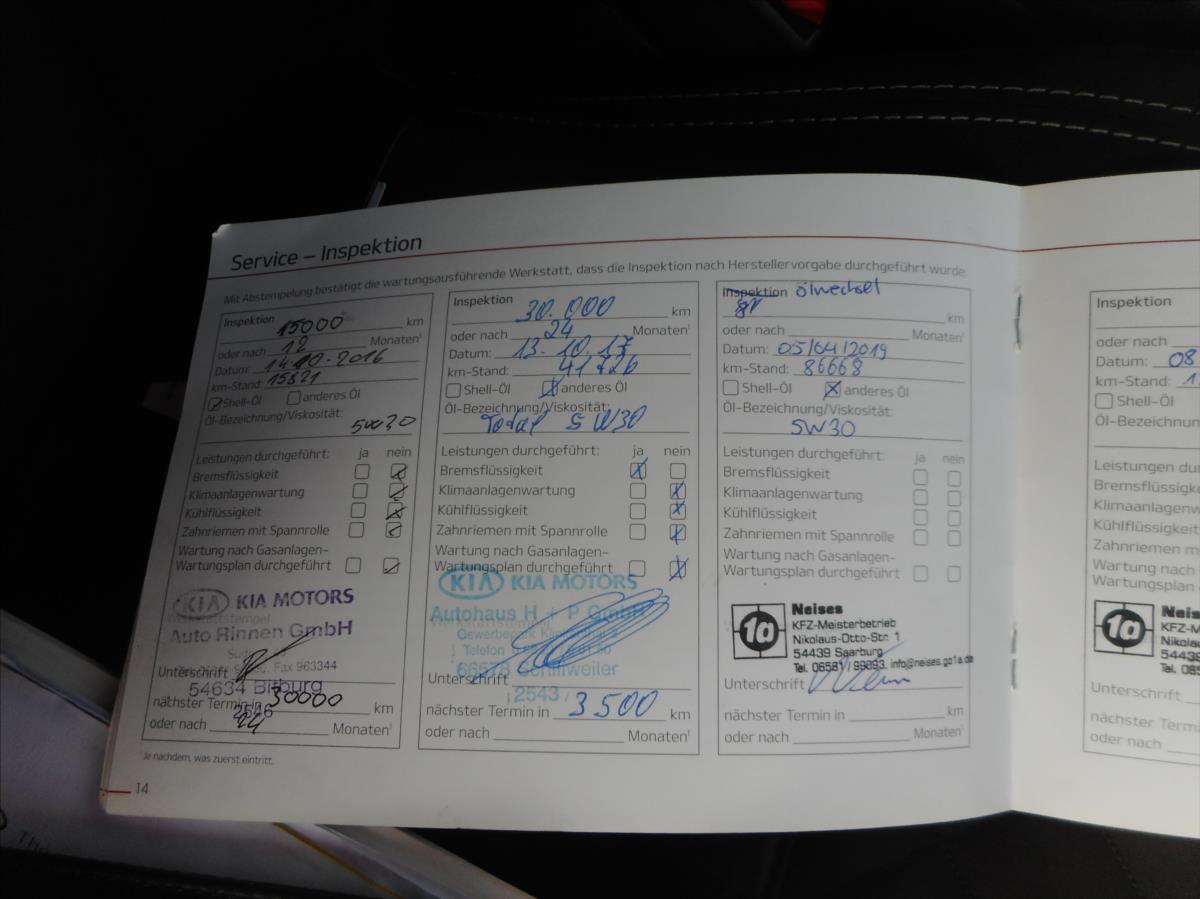 Service – Inspektion
Mit Abstempelung bestätigt die wartungsausführende Werkstatt, dass die Inspektion nach Herstellervorgabe durchgeführt wurde.
Inspektion 15000 km
oder nach 12 Monaten¹
Datum: 14.10.2016
km-Stand: 15321
Shell-Öl anderes Öl
Öl-Bezeichnung/Viskosität:
5W30
Leistungen durchgeführt: ja nein
Bremsflüssigkeit
Klimaanlagenwartung
Kühlflüssigkeit
Zahnriemen mit Spannrolle
Wartung nach Gasanlagen-
Wartungsplan durchgeführt
KIA KIA MOTORS
Werkstattstempel
Auto Rinnen GmbH
Fax 963344
Unterschrift
54634 Bitburg
nächster Termin in 30000 km
oder nach 24 Monaten¹
Inspektion 30.000 km
oder nach 24 Monaten¹
Datum: 13.10.17
km-Stand: 41726
Shell-Öl anderes Öl
Öl-Bezeichnung/Viskosität:
Total 5W30
Leistungen durchgeführt: ja nein
Bremsflüssigkeit
Klimaanlagenwartung
Kühlflüssigkeit
Zahnriemen mit Spannrolle
Wartung nach Gasanlagen-
Wartungsplan durchgeführt
KIA KIA MOTORS
Autohaus H + P GmbH
Werkstattstempel
Gewerbepark
Telefon
66578 Schiffweiler
Unterschrift
2543
nächster Termin in 3500 km
oder nach Monaten¹
Inspektion Ölwechsel
km
oder nach Monaten¹
Datum: 05/04/2019
km-Stand: 86668
Shell-Öl anderes Öl
Öl-Bezeichnung/Viskosität:
5W30
Leistungen durchgeführt: ja nein
Bremsflüssigkeit
Klimaanlagenwartung
Kühlflüssigkeit
Zahnriemen mit Spannrolle
Wartung nach Gasanlagen-
Wartungsplan durchgeführt
1a Neises
KFZ-Meisterbetrieb
Nikolaus-Otto-Str. 1
54439 Saarburg
Tel. 06581/99093, info@neises.go1a.de
Unterschrift
nächster Termin in km
oder nach Monaten¹
¹Je nachdem, was zuerst eintritt.
14
Inspektion
oder nach
Datum: 08
km-Stand: 1
Shell-Öl
Öl-Bezeichnung
Leistungen du
Bremsflüssigke
Klimaanlagen
Kühlflüssigkei
Zahnriemen m
Wartung nach
Wartungsplan
1a Neis
KFZ-M
Nikola
5443
Tel. 06
Unterschrift
nächster Termi
oder nach